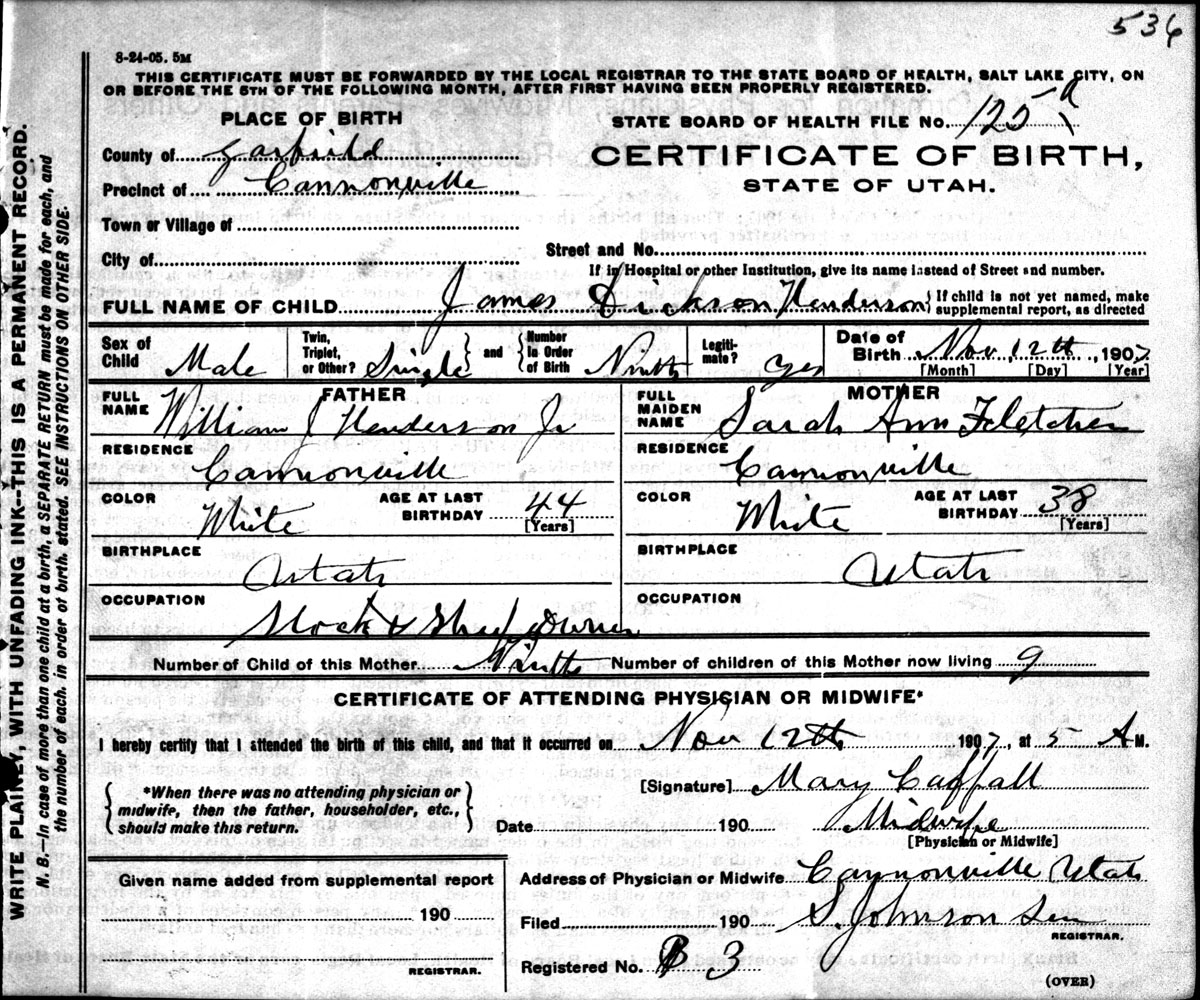 536
8-24-05. 5M
THIS CERTIFICATE MUST BE FORWARDED BY THE LOCAL REGISTRAR TO THE STATE BOARD OF HEALTH, SALT LAKE CITY, ON
OR BEFORE THE 5TH OF THE FOLLOWING MONTH, AFTER FIRST HAVING BEEN PROPERLY REGISTERED.
PLACE OF BIRTH
STATE BOARD OF HEALTH FILE No. 125-a
County of Garfield
CERTIFICATE OF BIRTH,
Precinct of Cannonville
STATE OF UTAH.
Town or Village of
City of
Street and No.
If in Hospital or other Institution, give its name instead of Street and number.
FULL NAME OF CHILD James Dickson Henderson { If child is not yet named, make
supplemental report, as directed
Sex of Child Male Twin, Triplet, or Other? Single and Number in Order of Birth Ninth Legiti-mate? yes Date of Birth Nov 12th, 1907
[Month] [Day] [Year]
FATHER
FULL NAME William J Henderson Jr
MOTHER
FULL MAIDEN NAME Sarah Ann Fletcher
RESIDENCE Cannonville
RESIDENCE Cannonville
COLOR White AGE AT LAST BIRTHDAY 44 [Years]
COLOR White AGE AT LAST BIRTHDAY 38 [Years]
BIRTHPLACE Utah
BIRTHPLACE Utah
OCCUPATION Stock & Sheep Owner
OCCUPATION
Number of Child of this Mother Ninth Number of children of this Mother now living 9
CERTIFICATE OF ATTENDING PHYSICIAN OR MIDWIFE*
I hereby certify that I attended the birth of this child, and that it occurred on Nov 12th, 1907, at 5 A M.
*When there was no attending physician or
midwife, then the father, householder, etc.,
should make this return.
[Signature] Mary Caffall
Date 190 Midwife
[Physician or Midwife]
Given name added from supplemental report
190
REGISTRAR.
Address of Physician or Midwife Cannonville Utah
Filed 190 S. Johnson Sen
REGISTRAR.
Registered No. B 3
(OVER)
WRITE PLAINLY, WITH UNFADING INK--THIS IS A PERMANENT RECORD.
N. B.--In case of more than one child at a birth, a SEPARATE RETURN must be made for each, and
the number of each, in order of birth, stated. SEE INSTRUCTIONS ON OTHER SIDE.